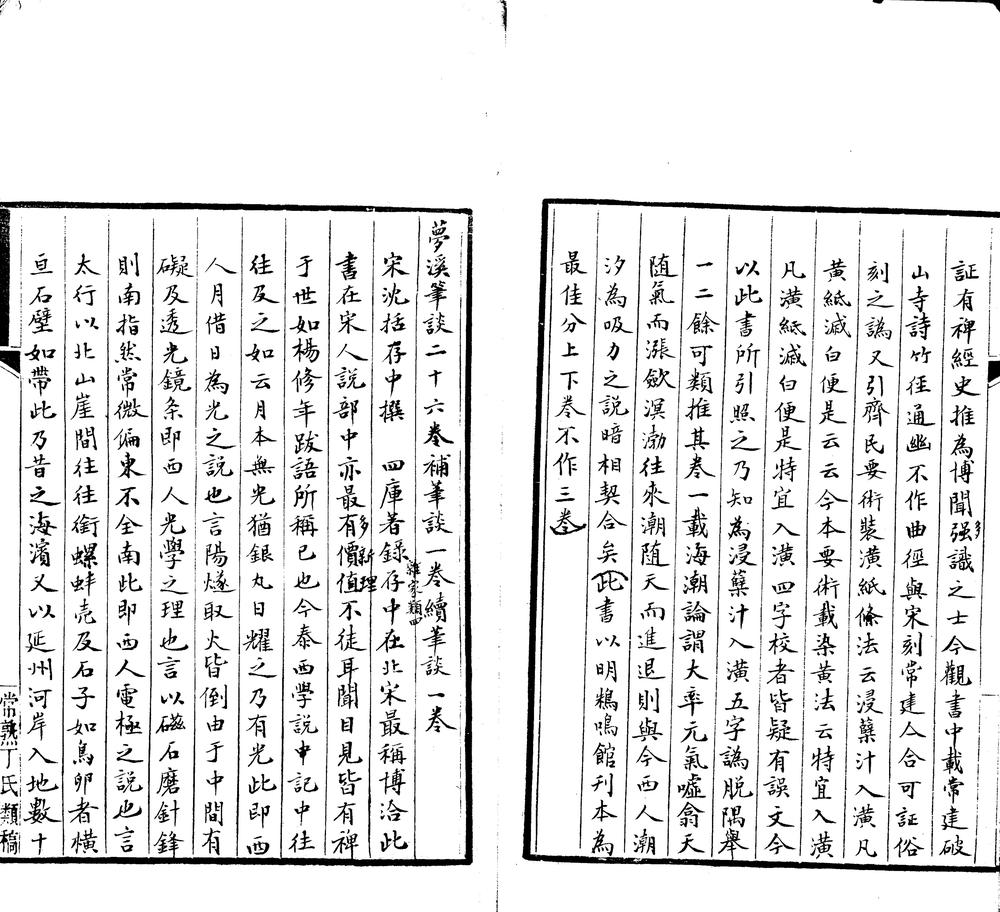 証有裨經史推為博聞强識之士今觀書中載常建破
山寺詩竹徑通幽不作曲徑與宋刻常建人合可証俗
刻之譌又引齊民要術裝潢紙條法云浸蘗汁入潢凡
黃紙滅白便是云云今本要術載染黃法云特宜入潢
凡潢紙滅白便是特宜入潢四字校者皆疑有誤文今
以此書所引照之乃知為浸蘗汁入潢五字譌脱隅舉
一二餘可類推其卷一載海潮論謂大率元氣噓翕天
随氣而漲歛溟渤往來潮随天而進退則與今西人潮
汐為吸力之説暗相契合矣此書以明鵶鳴館刊本為
最佳分上下卷不作三卷
夢溪筆談二十六卷補筆談一卷續筆談一卷
宋沈括存中撰 四庫著錄雜家類四存中在北宋最稱博洽此
書在宋人説部中亦最有價值多新理不徒耳聞目見皆有裨
于世如楊修年跋語所稱已也今泰西學説申記中往
往及之如云月本無光猶銀丸日耀之乃有光此即西
人月借日為光之説也言陽燧取火皆倒由于中間有
礙及透光鏡条即西人光學之理也言以磁石磨針鋒
則南指然常微偏東不全南此即西人電極之説也言
太行以北山崖間往往銜螺蚌壳及石子如鳥卵者橫
亘石壁如帶此乃昔之海濱又以延州河岸入地數十
常熟丁氏類稿